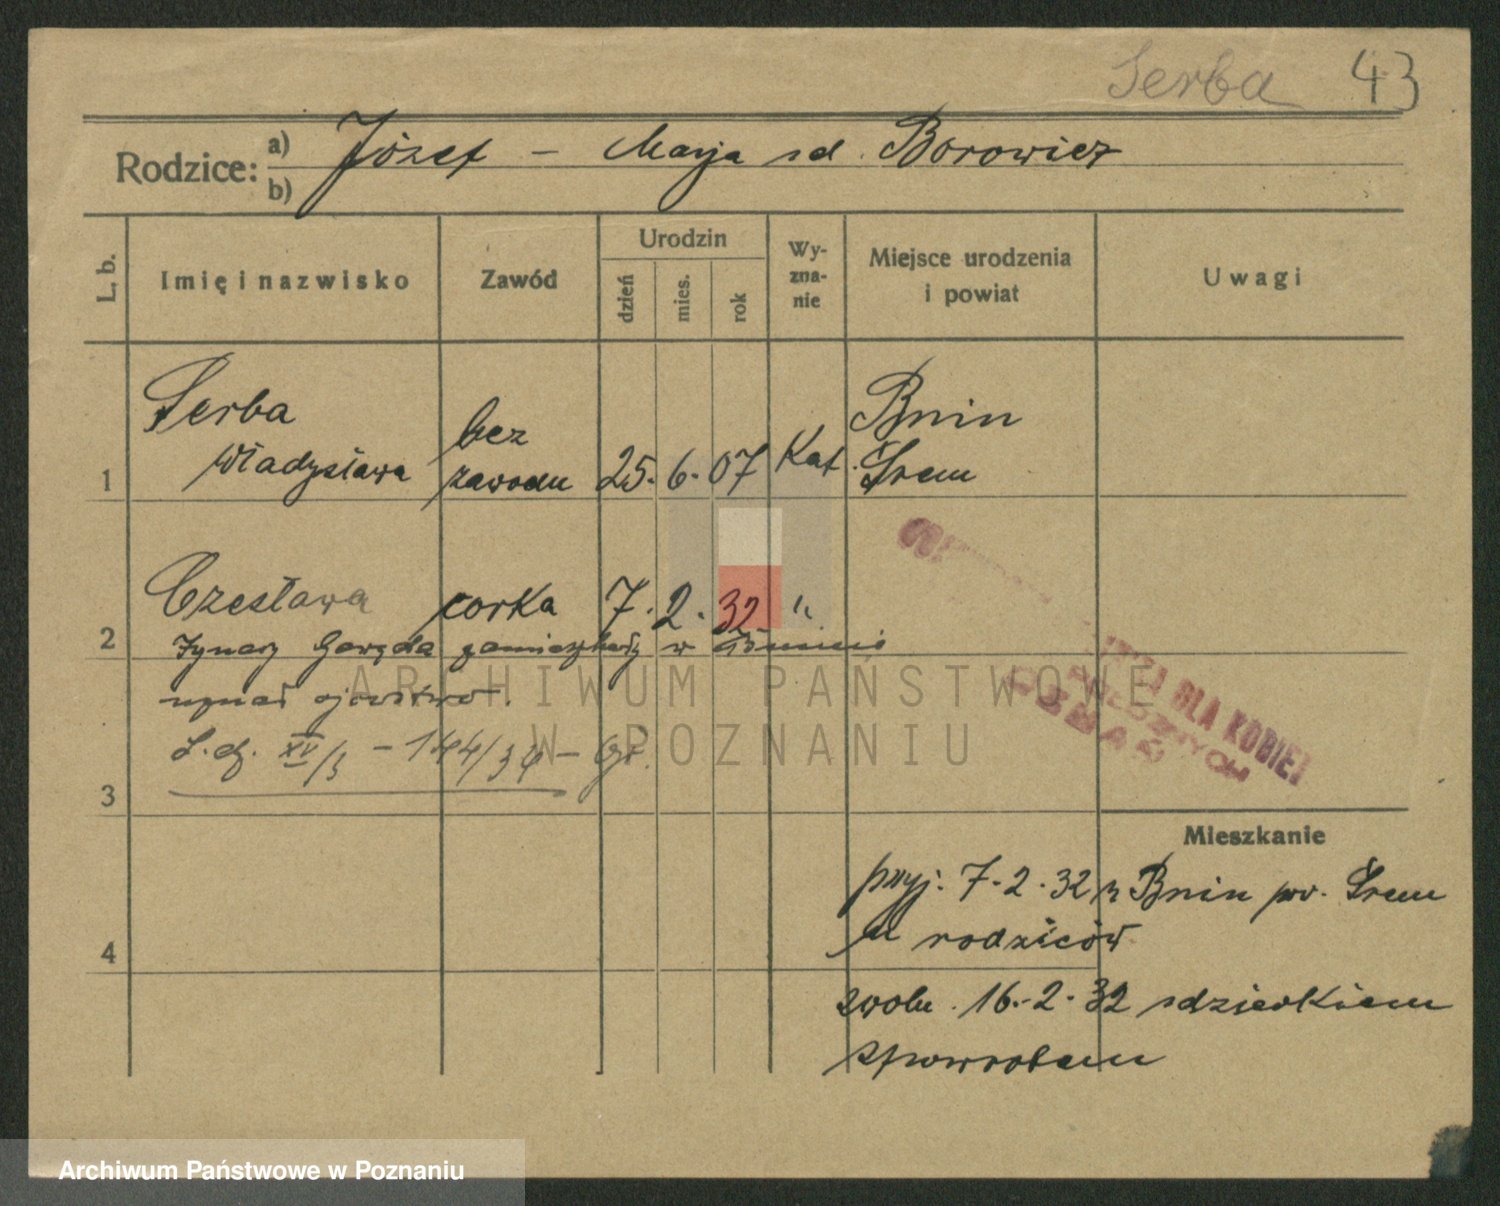 Serba 43
Rodzice: a) Józef – Marja sd. Borowicz
b)
L. b. Imię i nazwisko Zawód Urodzin dzień mies. rok Wy-zna-nie Miejsce urodzenia i powiat Uwagi
1 Serba Władysława bez zawodu 25. 6. 07 Kat. Bnin Śrem
2 Czesława corka 7. 2. 32 "
Ignacy zamieszkały w Bninie
uznał ojcostwo.
L. dz. XV/3 – 144/34 –
3
DLA KOBIET
Mieszkanie
przyj. 7-2-32 z Bnin pow. Śrem
4 u rodziców
zwoln. 16.-2-32 z dzieckiem
z powrotem
ARCHIWUM PAŃSTWOWE
W POZNANIU
Archiwum Państwowe w Poznaniu